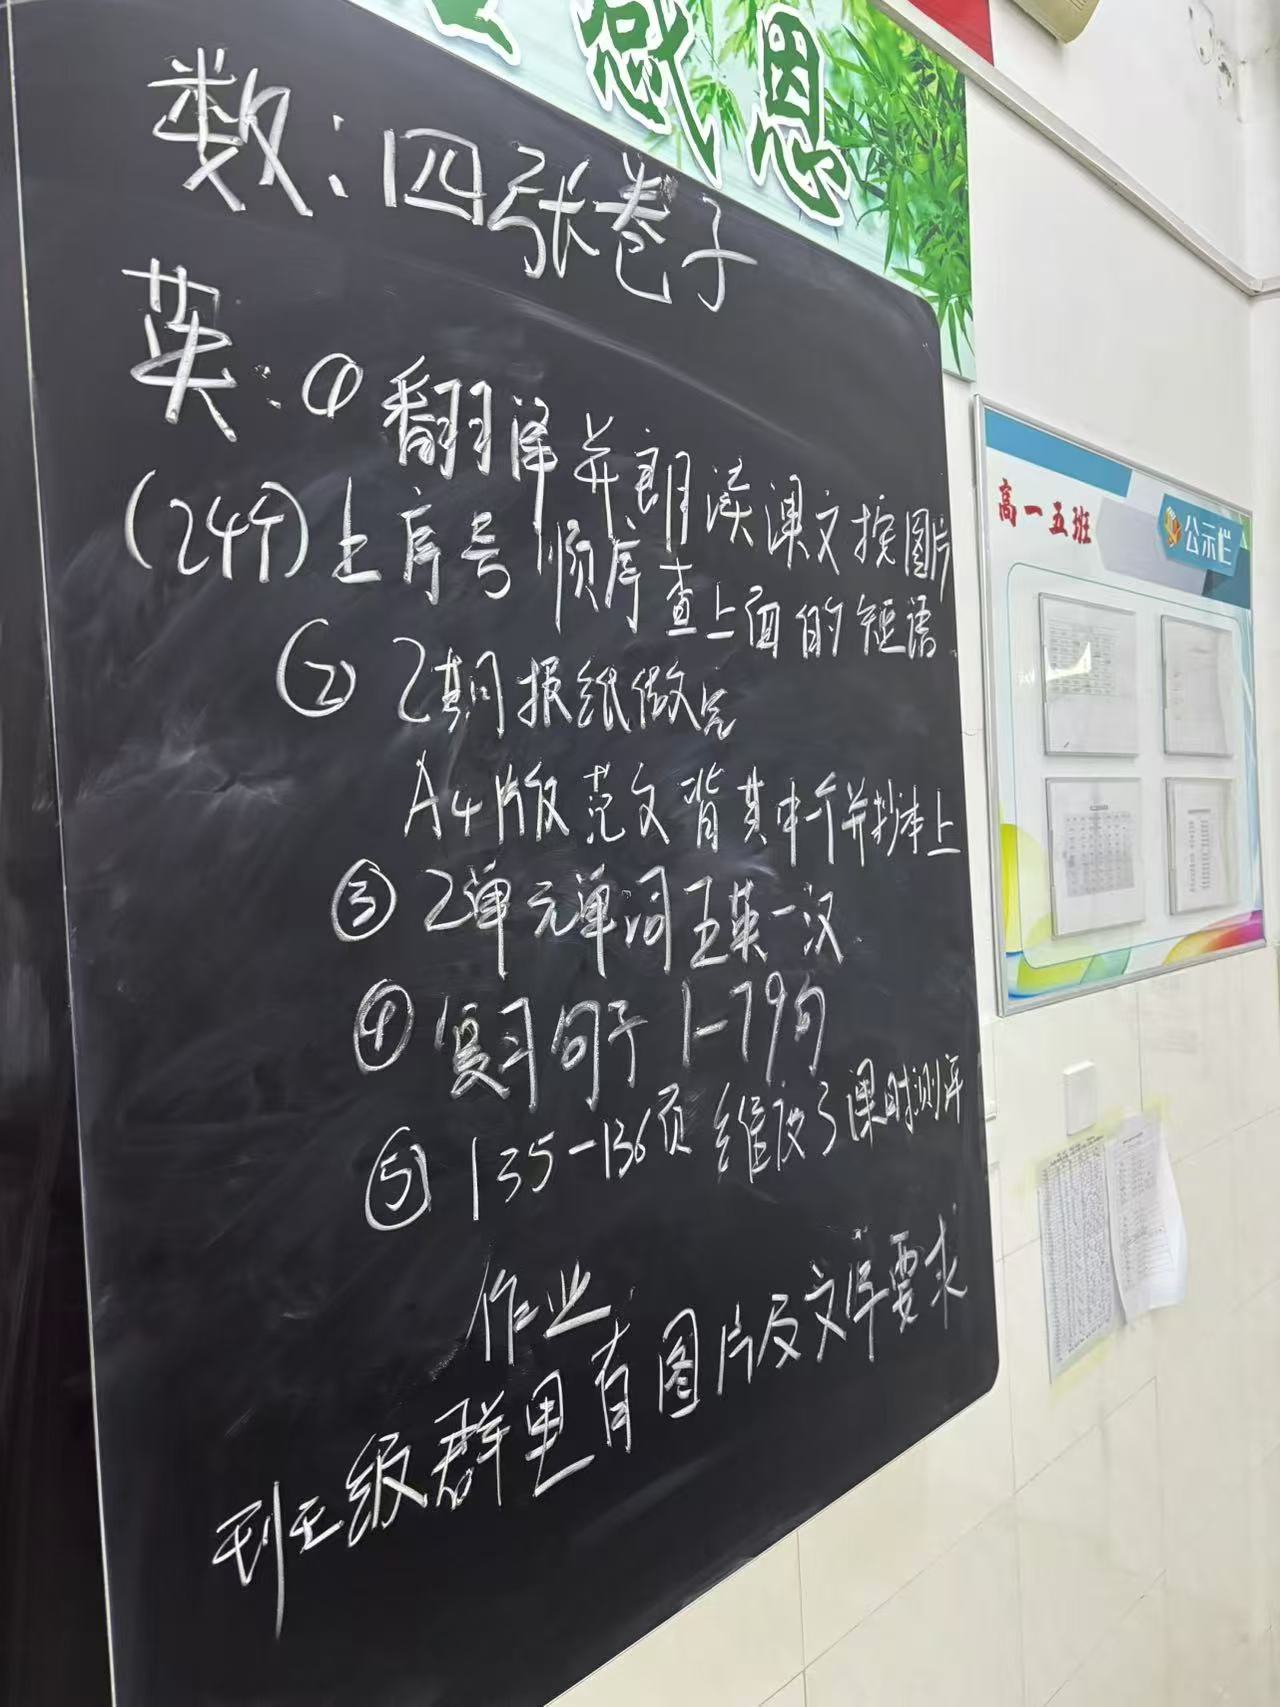 感恩
数:四张卷子
英:①翻译并朗读课文按图片
(24个)上序号 顺序查上面的短语
② 2期报纸做完
A4版范文背其中一个并抄本上
③ 2单元单词王英一汉
④ 复习句子 1-79句
⑤ 135-136页 维度3课时测评
作业
班级群里有图片及文库要求
高一五班
公示栏